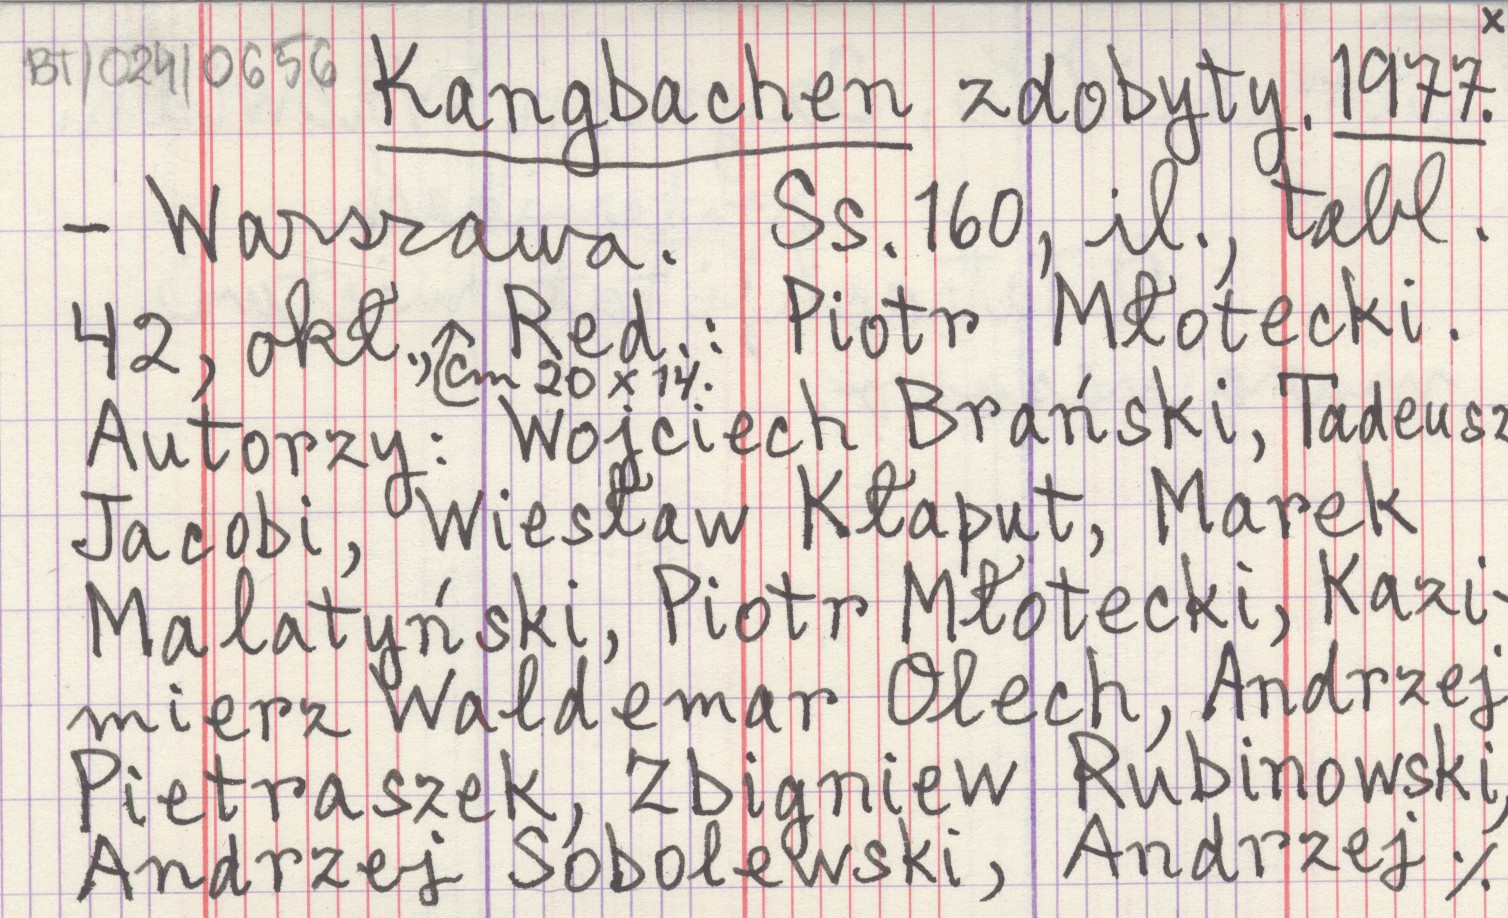 BT/024/0656 Kangbachen zdobyty. 1977. x
- Warszawa. Ss. 160, il., tabl.
42, okł., Red.: Piotr Młotecki.
cm 20 x 14.
Autorzy: Wojciech Brański, Tadeusz
Jacobi, Wiesław Kłaput, Marek
Malatyński, Piotr Młotecki, Kazi-
mierz Waldemar Olech, Andrzej
Pietraszek, Zbigniew Rubinowski,
Andrzej Sobolewski, Andrzej ·/.